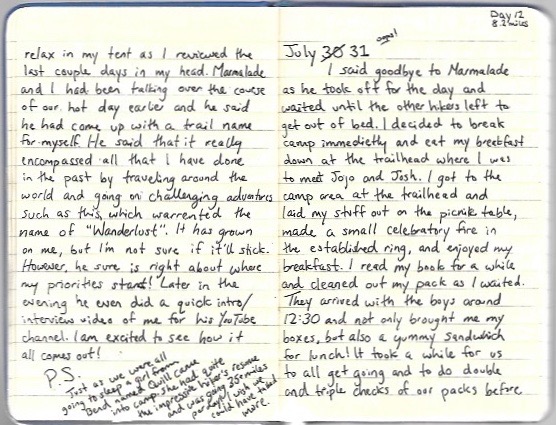 relax in my tent as I reviewed the
last couple days in my head. Marmalade
and I had been talking over the course
of our hot day earlier and he said
he had come up with a trail name
for myself. He said that it really
encompassed all that I have done
in the past by traveling around the
world and going on challenging adventures
such as this, which warrented the
name of "Wanderlust". It has grown
on me, but I'm not sure if it'll stick.
However, he sure is right about where
my priorities stand! Later in the
evening he even did a quick intro/
interview video of me for his YouTube
channel. I am excited to see how it
all comes out!
P.S.
Just as we were all
going to sleep a girl from
Bend named Quill came
into camp. She had quite
the impressive hiker's resume
and was going 35 miles
per day. I wish we
could have talked
more.
Day 12
8.2 miles
oops!
July 30 31
I said goodbye to Marmalade
as he took off for the day and
waited until the other hikers left to
get out of bed. I decided to break
camp immedietly and eat my breakfast
down at the trailhead where I was
to meet Jojo and Josh. I got to the
camp area at the trailhead and
laid my stuff out on the picnik table,
made a small celebratory fire in
the established ring, and enjoyed my
breakfast. I read my book for a while
and cleaned out my pack as I waited.
They arrived with the boys around
12:30 and not only brought me my
boxes, but also a yummy sandwich
for lunch! It took a while for us
to all get going and to do double
and triple checks of our packs before